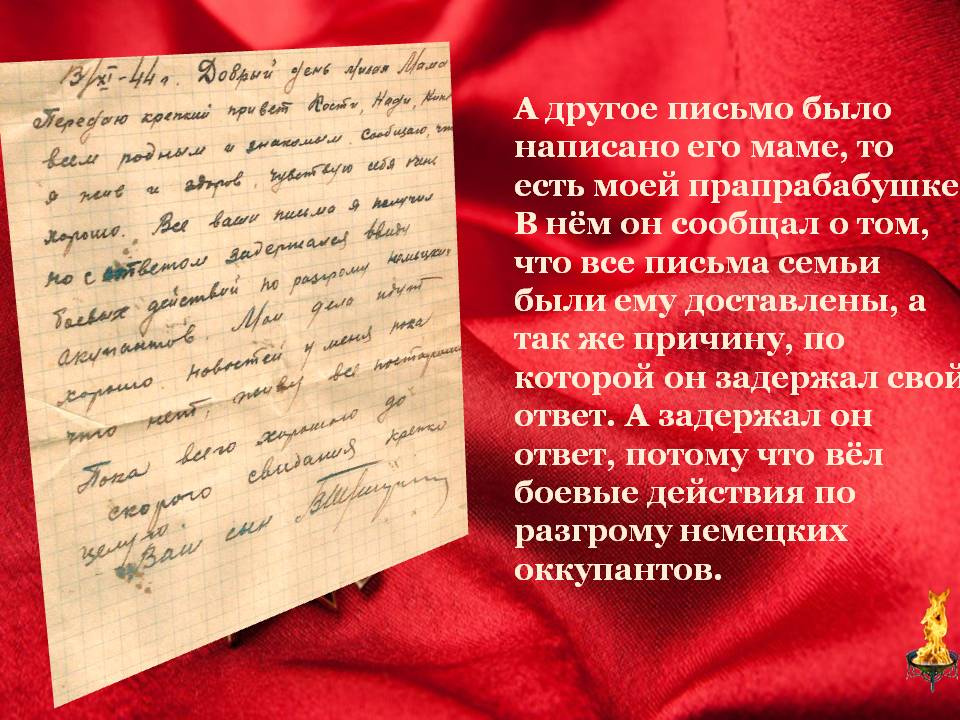 13/XI-44 г. Добрый день милая Мама
Передаю крепкий привет Кости, Нади,
всем родным и знакомым. Сообщаю, что
я жив и здоров, чувствую себя
хорошо. Все ваши письма я получил
но с ответом задержался ввиду
боевых действий по разгрому немецких
акупантов. Мои дела идут
хорошо. Новостей у меня пока
что нет, живу все постарому
Пока всего хорошого до
скорого свидания крепко
целую.
Ваш сын
А другое письмо было
написано его маме, то
есть моей прапрабабушке
В нём он сообщал о том,
что все письма семьи
были ему доставлены, а
так же причину, по
которой он задержал свой
ответ. А задержал он
ответ, потому что вёл
боевые действия по
разгрому немецких
оккупантов.